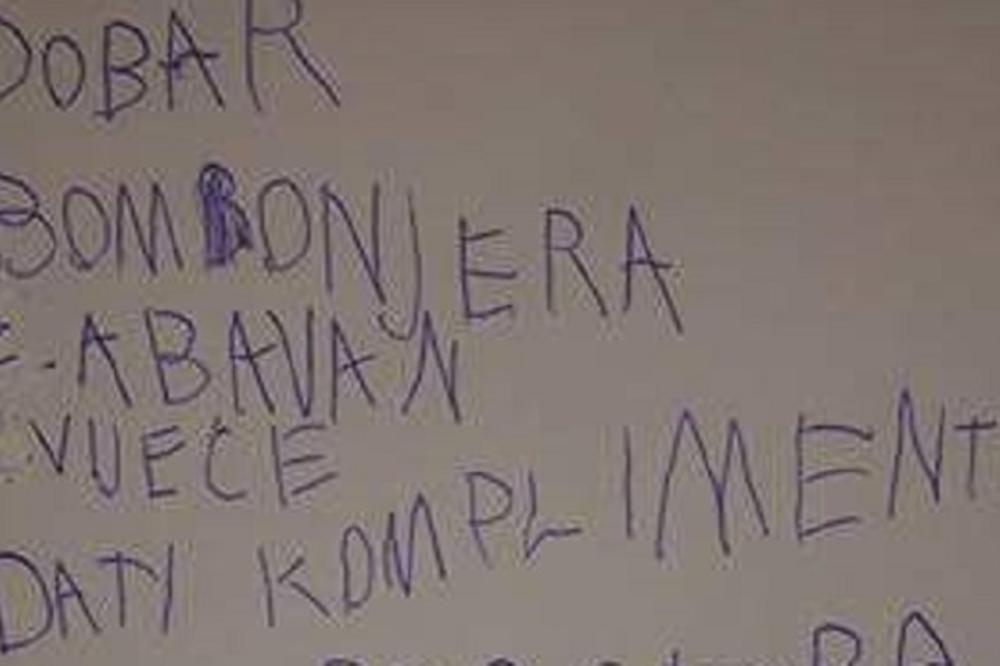 DOBAR
BOMBONJERA
ABAVAN
VUEĆE
DATI KOMPLIMENT